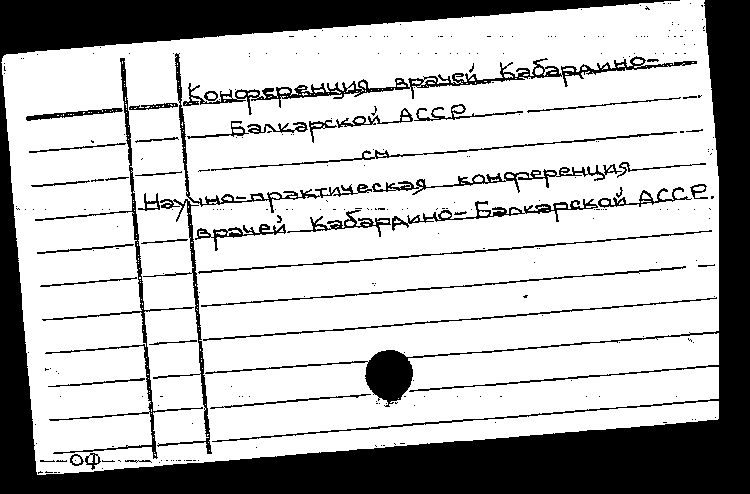 Конференция врачей Кабардино-
Балкарской АССР
см
Научно-практическая конференция
врачей Кабардино-Балкарской АССР.
ОФ